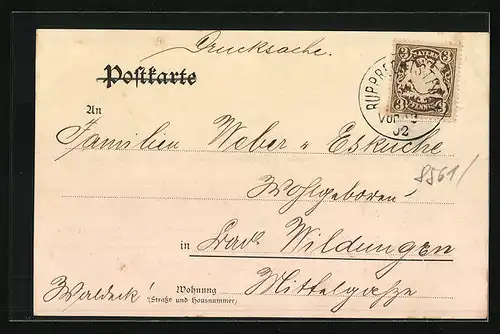 Drucksache.
Postkarte
BAYERN
3 3
3 PFENNIG 3
RUPPRE
VOR
02
An
Familien Weber u Eskuche
8561/
Wohlgeboren!
in Bad Wildungen
Waldeck! Wohnung Mittelgasse
(Straße und Hausnummer)